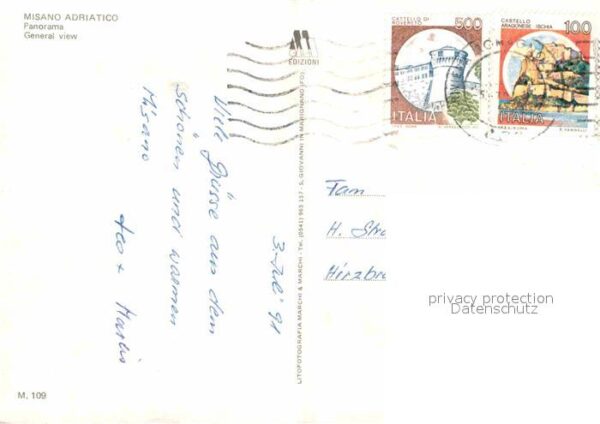 MISANO ADRIATICO
Panorama
General view
EDIZIONI
CASTELLO DI
ROVERETO
500
ITALIA
CASTELLO
ARAGONESE ISCHIA
100
ITALIA
3. Juli '91
Viele Grüsse aus dem
schönen und warmen
Misano
LITOFOTOGRAFIA MARCHI & MARCHI - Tel. (0541) 955 157 - S. GIOVANNI IN MARIGNANO (FO)
Fam
H. Str
Hirzbr
privacy protection
Datenschutz
M. 109